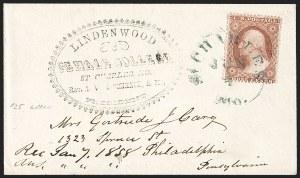 LINDENWOOD
FEMALE COLLEGE
ST CHARLES, MO.
PRESIDENT
ST CHARLES
MO.
Mrs Gertrude J Cary
1323 Spruce St
Rec Jan 7, 1858 Philadelphia
Ans. " " " Pennsylvania